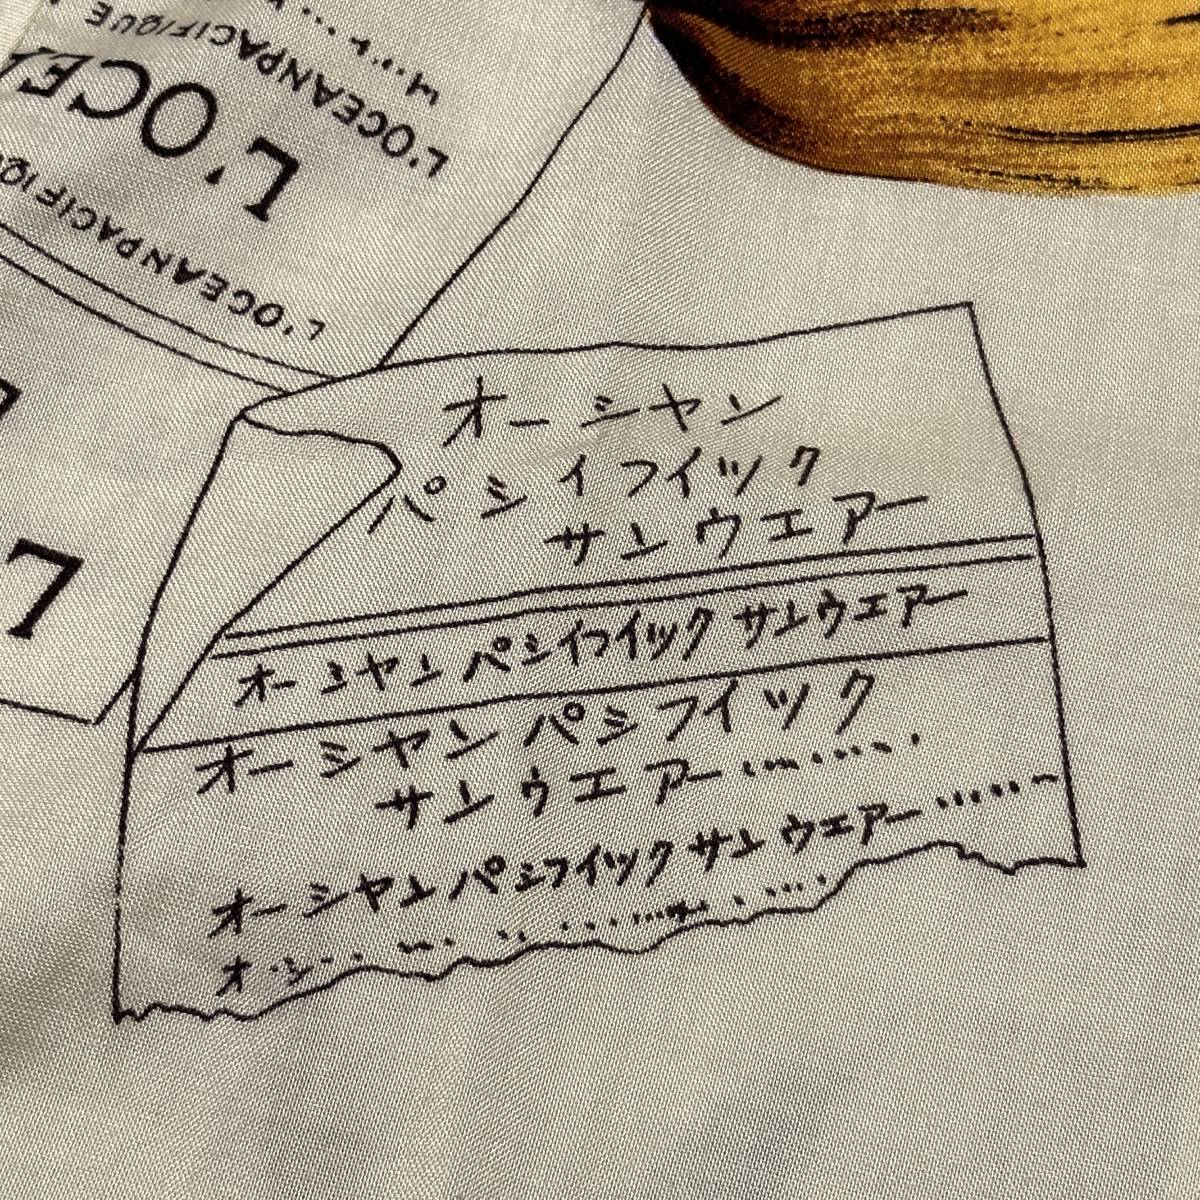 L'OCEANPACIFIQUE
L'OCEA
L'OCEANPACIFIQ
7
オーシヤン
パシイフイツク
サンウエアー
オーシヤンパシイフイツクサンウエアー
オーシヤンパシフイツク
サンウエアー………
オーシヤンパシフイツクサンウエアー……